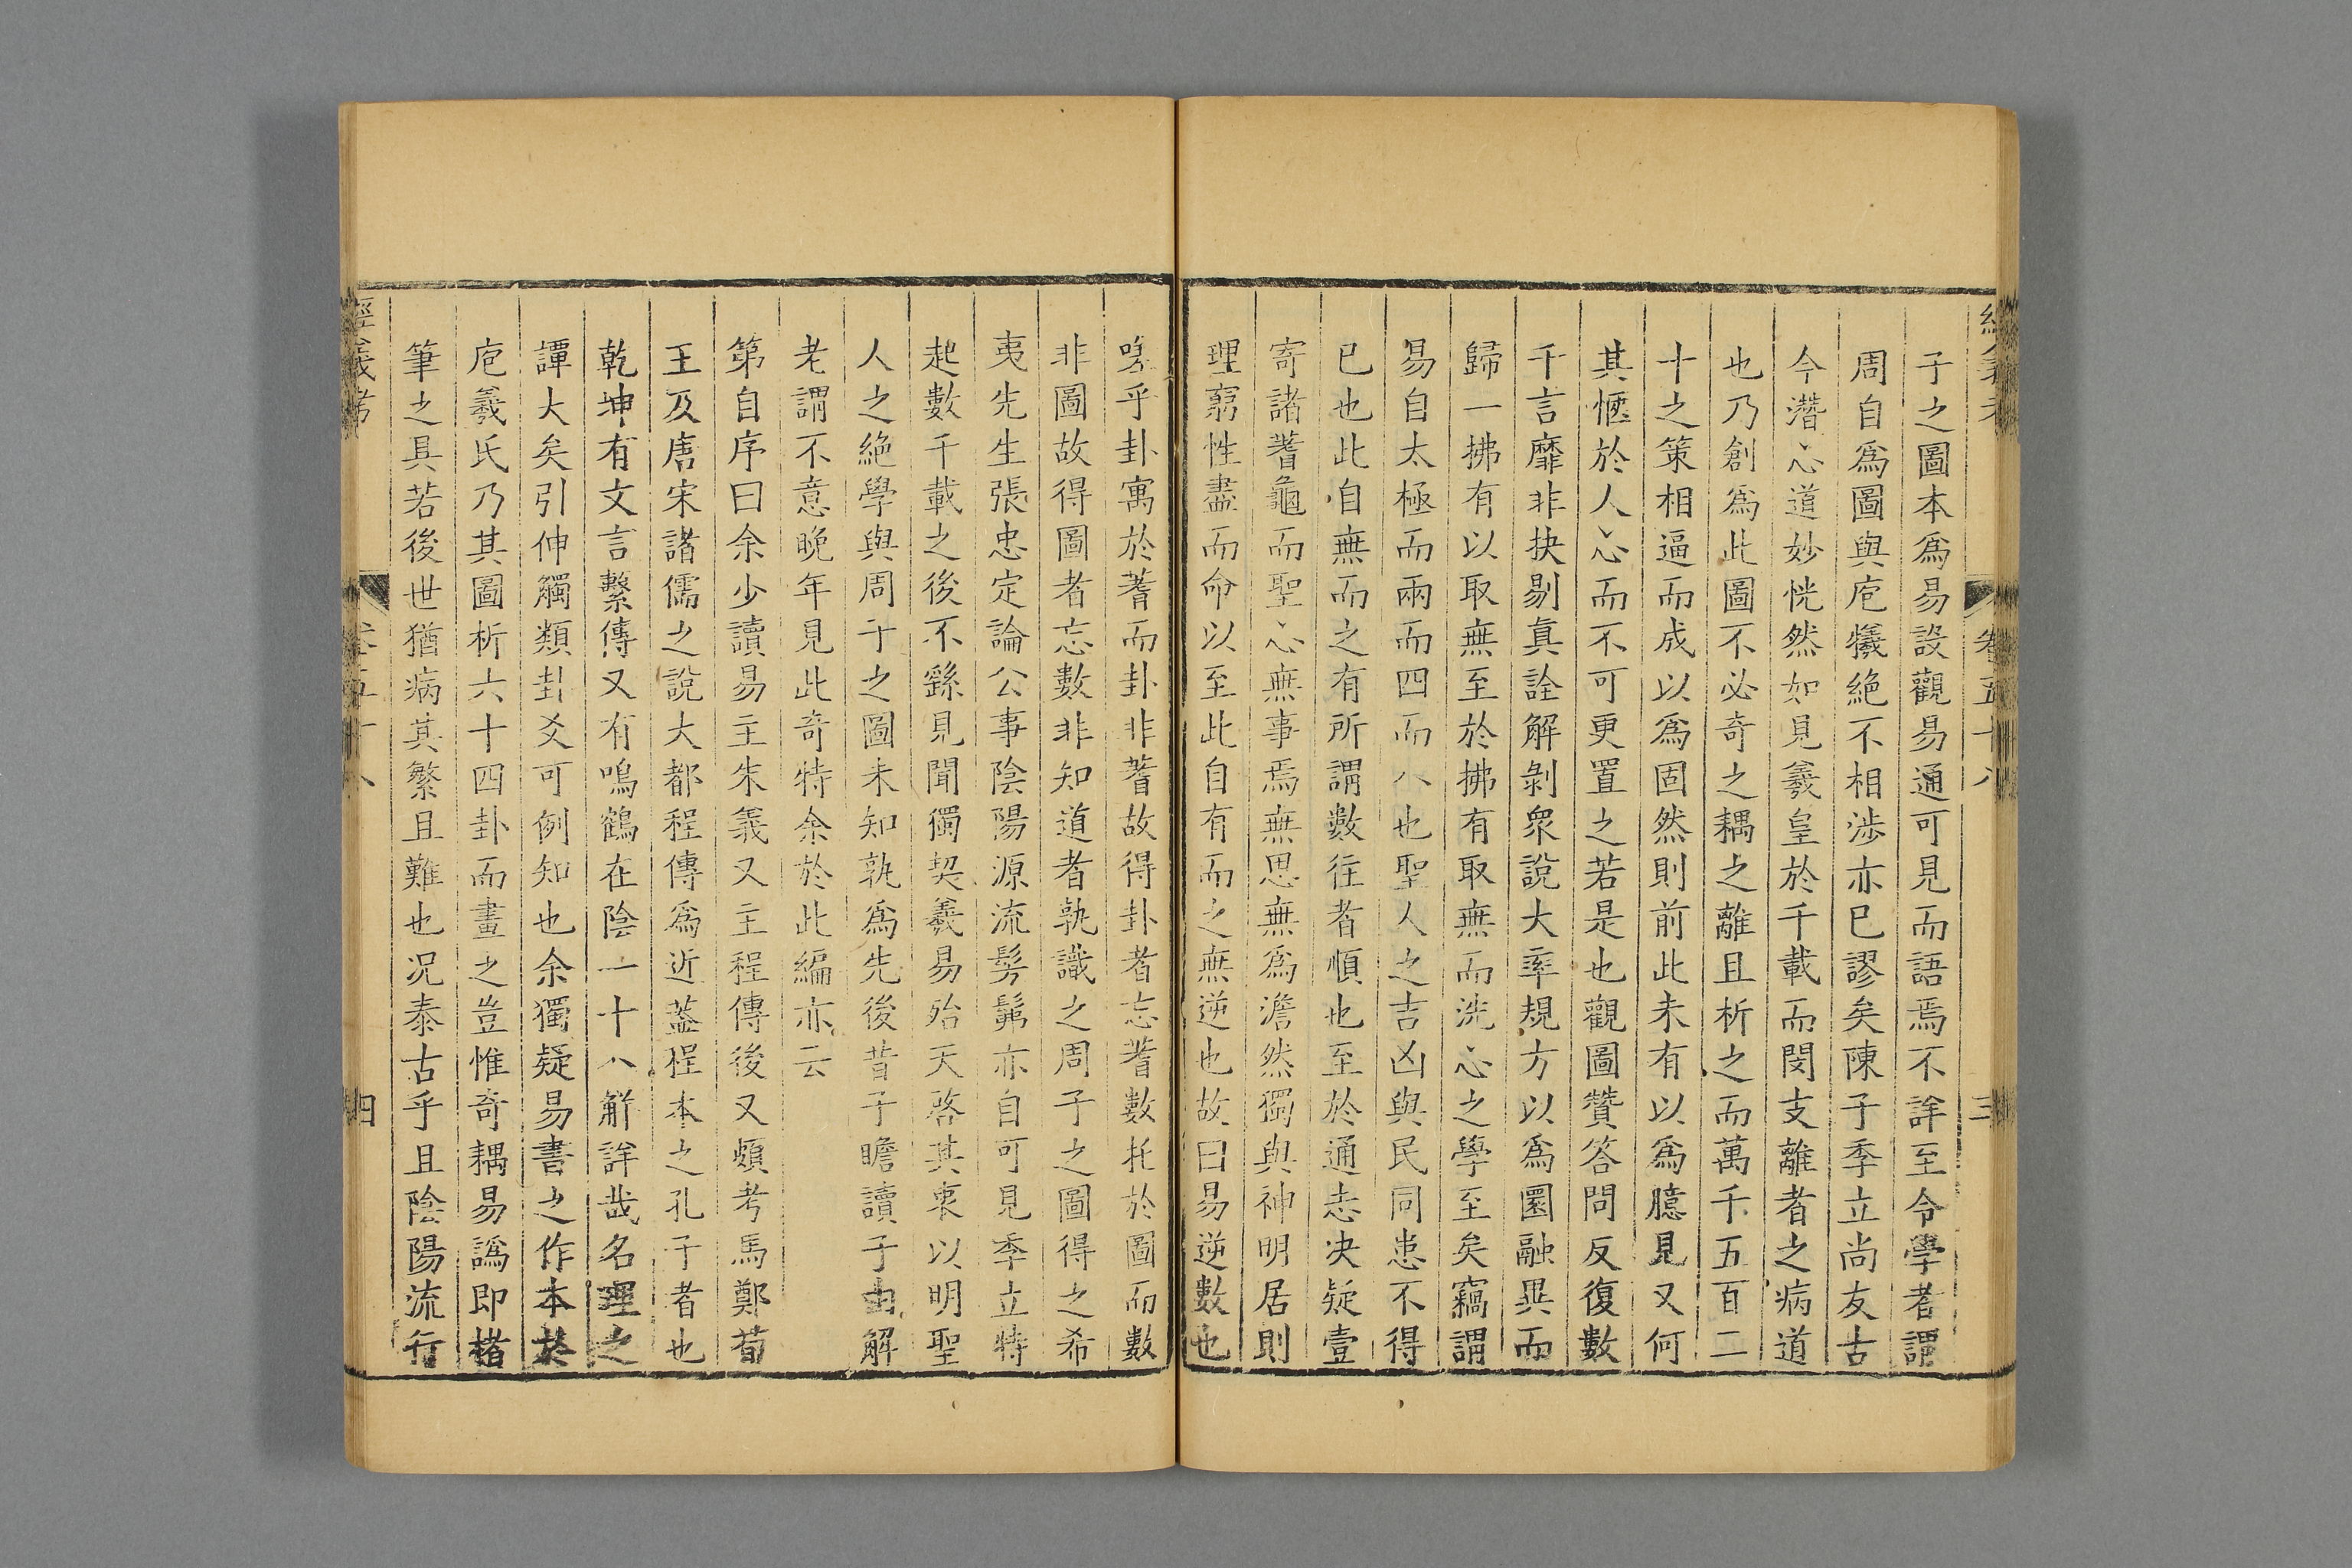 經義考
卷五十八
三
子之圖本爲易設觀易通可見而語焉不詳至令學者謂
周自爲圖與庖犧絶不相涉亦已謬矣陳子季立尚友古
今潛心道妙恍然如見羲皇於千載而閔支離者之病道
也乃創爲此圖不必奇之耦之離且析之而萬千五百二
十之策相逼而成以爲固然則前此未有以爲臆見又何
其愜於人心而不可更置之若是也觀圖贊答問反復數
千言靡非抉剔真詮解剝衆說大率規方以爲圜融異而
歸一拂有以取無至於拂有取無而洗心之學至矣竊謂
易自太極而兩而四而八也聖人之吉凶與民同患不得
已也此自無而之有所謂數往者順也至於通志决疑壹
寄諸蓍龜而聖心無事焉無思無爲澹然獨與神明居則
理窮性盡而命以至此自有而之無逆也故曰易逆數也
嗚乎卦寓於蓍而卦非蓍故得卦者忘蓍數托於圖而數
非圖故得圖者忘數非知道者孰識之周子之圖得之希
夷先生張忠定論公事陰陽源流髣髴亦自可見季立特
起數千載之後不繇見聞獨契羲易殆天啓其衷以明聖
人之絶學與周子之圖未知孰爲先後昔子瞻讀子由解
老謂不意晚年見此奇特余於此編亦云
第自序曰余少讀易主朱義又主程傳後又頗考馬鄭荀
王及唐宋諸儒之說大都程傳爲近蓋程本之孔子者也
乾坤有文言繫傳又有鳴鶴在陰一十八解詳哉名理之
譚大矣引伸觸類卦爻可例知也余獨疑易書之作本於
庖羲氏乃其圖析六十四卦而畫之豈惟奇耦易譌即楮
筆之具若後世猶病其繁且難也况泰古乎且陰陽流行
經義考
卷五十八
四